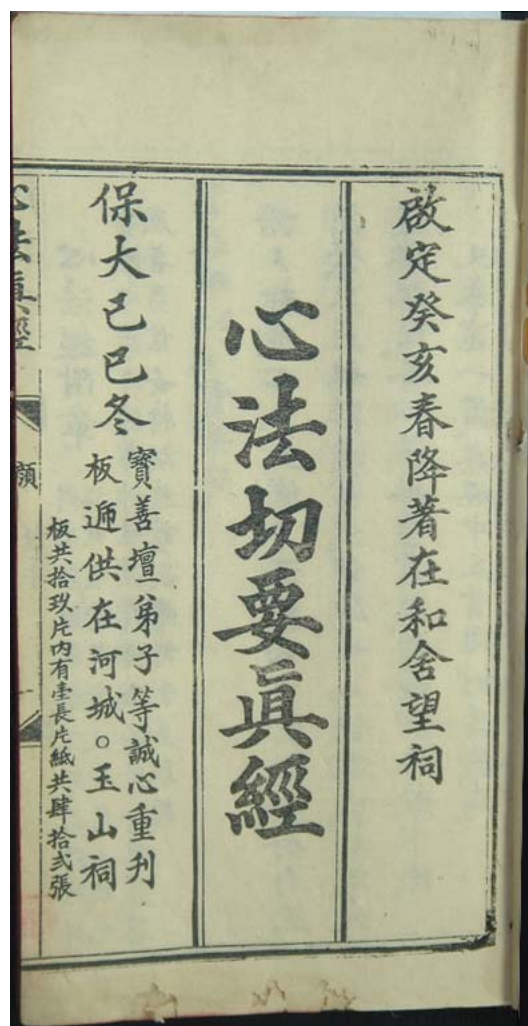 啟定癸亥春降著在和舍望祠
心法切要眞經
保大己巳冬
寶善壇弟子等誠心重刋
板逓供在河城。玉山祠
板共拾玖片内有壹長片紙共肆拾弍張
心法眞經